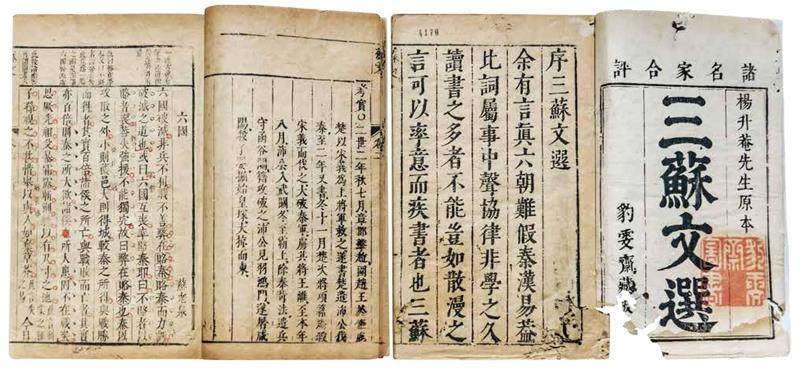 諸名家合評
楊升菴先生原本
三蘇文選
豹雯齋藏
4170
序三蘇文選
余有言真六朝難假秦漢易蓋
比詞屬事中聲協律非學之久
讀書之多者不能豈如散漫之
言可以率意而疾書者也三蘇
考實〇二世二年秋七月章邯擊趙圍趙王
楚以宋義為上將軍救之遂書楚遣沛公伐
秦至二年又書冬十一月楚次將項籍矯殺
宋義而代之大破秦軍虜其將王離至本年
八月沛公入武關冬至霸上除秦苛法遣兵
守函谷關籍攻破之沛公見羽鴻門遂屠咸
陽殺子嬰掘始皇塚大掠而東
六國
蘇老泉
六國破滅非兵不利戰不善弊在賂秦賂秦而力虧
破滅之道也或曰六國互喪率賂秦耶曰不賂者以
賂者喪蓋失強援不能獨完故曰弊在賂秦也秦以
攻取之外小則獲邑大則得城較秦之所得與戰勝
而得者其實百倍諸侯之所亡與戰敗而亡者其實
亦百倍則秦之所大欲諸侯之所大患固不在戰矣
思厥先祖父暴霜露斬荊棘以有尺寸之地
子孫視之不甚惜舉以與人如棄草芥今日